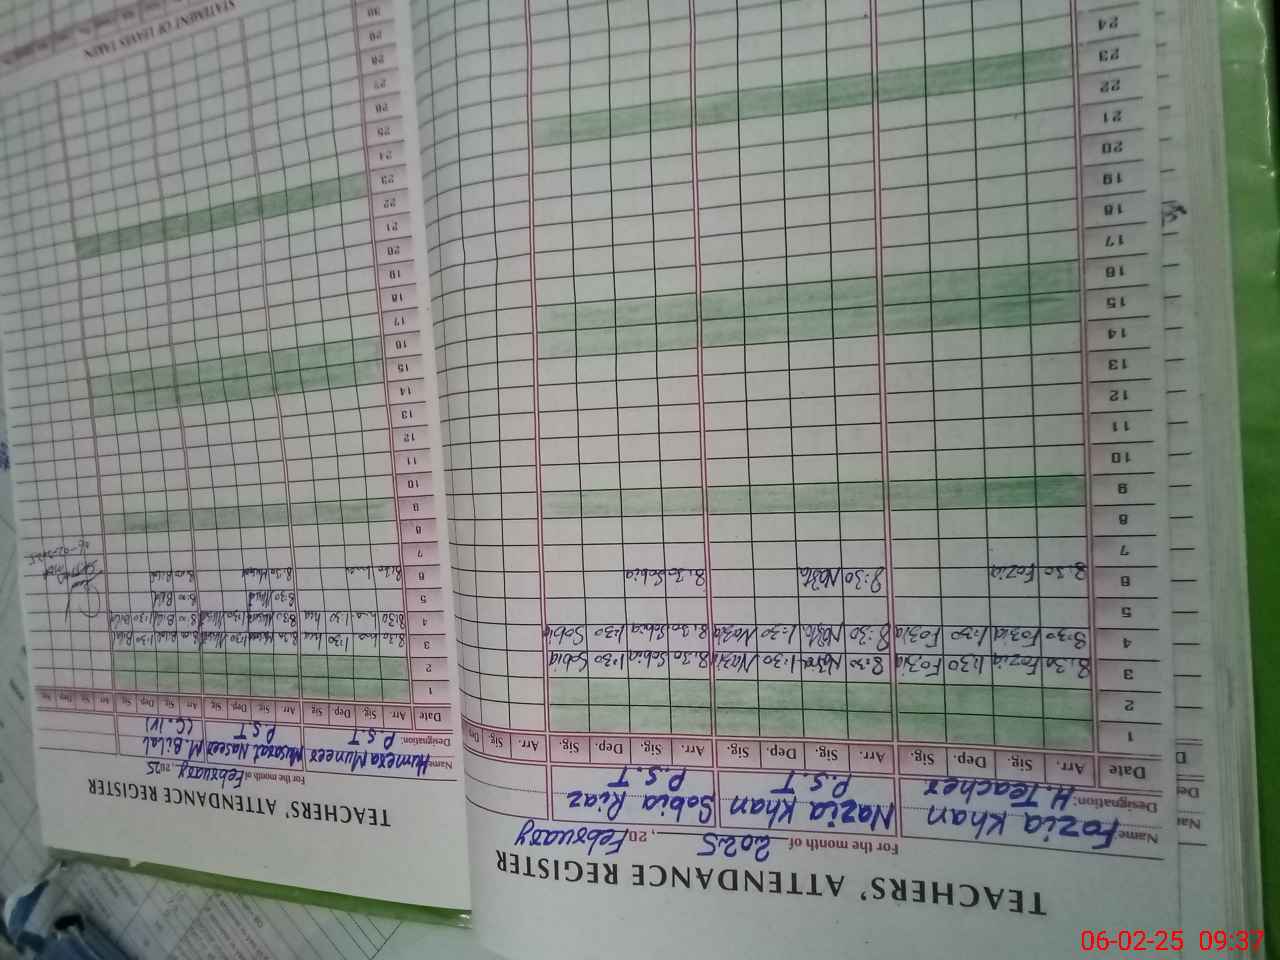 TEACHERS' ATTENDANCE REGISTER
For the month of 2025, 20 February
Name: Fozia Khan Nazia Khan Sobia Riaz
Designation: H. Teacher P.S.T P.S.T
Date Arr. Sig. Dep. Sig. Arr. Sig. Dep. Sig. Arr. Sig. Dep. Sig. Arr. Sig.
1
2
3 8:30 Fozia 1:30 Fozia 8:30 Nazia 1:30 Nazia 8:30 Sobia 1:30 Sobia
4 8:30 Fozia 1:30 Fozia 8:30 Nazia 1:30 Nazia 8:30 Sobia 1:30 Sobia
5
6 8:30 Fozia 8:30 Nazia 8:30 Sobia
7
8
9
10
11
12
13
14
15
16
17
18
19
20
21
22
23
24
TEACHERS' ATTENDANCE REGISTER
For the month of February, 2025
Name: Humera Muneer Musarat Naseer M. Bilal
Designation: P.S.T P.S.T (C.IV)
Date Arr. Sig. Dep. Sig. Arr. Sig. Dep. Sig. Arr. Sig. Dep. Sig.
1
2
3 8:30 1:30 8:30 1:30 8:00 Bilal 1:30 Bilal
4 8:30 1:30 8:30 1:30 8:00 Bilal 1:30 Bilal
5 8:30 8:00 Bilal
6 8:30 8:30 8:00 Bilal
06-02-2025
7
8
9
10
11
12
13
14
15
16
17
18
19
20
21
22
23
24
25
26
27
28
29
30
STATEMENT OF LEAVES TAKEN
06-02-25 09:37